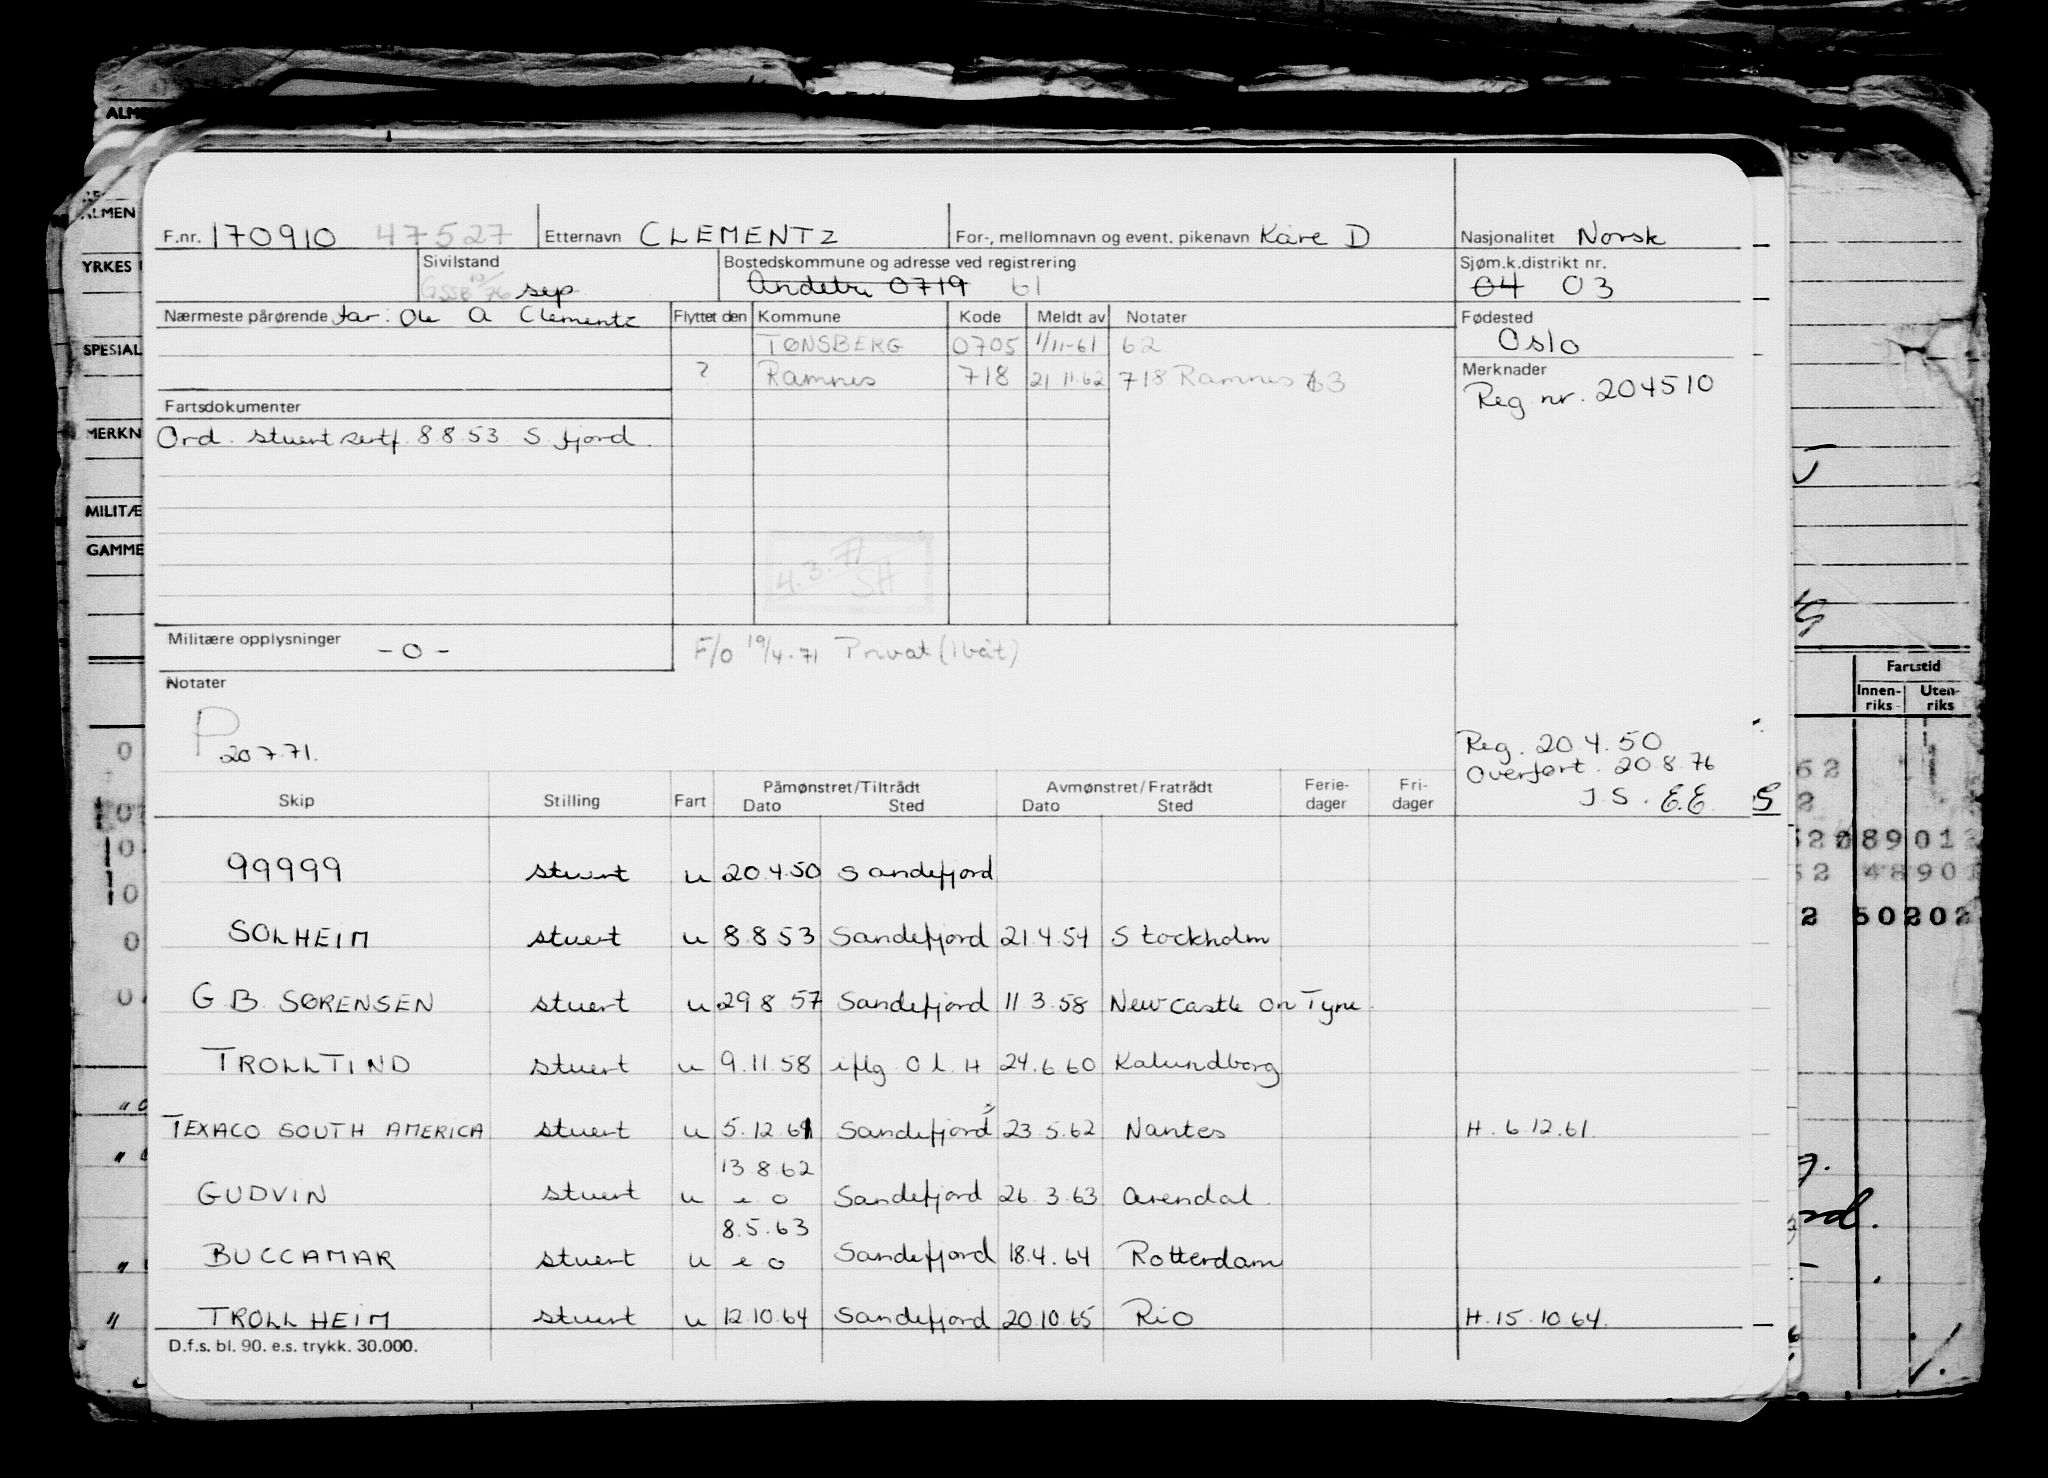 F.nr. 170910 47527 Etternavn CLEMENTZ For-, mellomnavn og event. pikenavn Kåre D Nasjonalitet Norsk
Sivilstand sep Bostedskommune og adresse ved registrering Andebu 0719 61 Sjøm.k.distrikt nr. 04 03
Nærmeste pårørende far: Ole A Clementz Flyttet den Kommune Kode Meldt av Notater Fødested
TØNSBERG 0705 1/11-61 62 Oslo
? Ramnes 718 21 11.62 718 Ramnes 63 Merknader
Reg nr. 204510
Fartsdokumenter
Ord. stuert sertf. 8.8.53 S.fjord.
4.3.71
SA
Militære opplysninger - 0 - F/O 19/4-71 Privat (1 båt)
Notater
P
20.7.71.
Reg. 20.4.50
Overført. 20.8.76
J.S. E.E.
Skip Stilling Fart Påmønstret/Tiltrådt Dato Sted Avmønstret/Fratrådt Dato Sted Ferie-dager Fri-dager
99999 stuert u 20.4.50 Sandefjord
SOLHEIM stuert u 8.8.53 Sandefjord 21.4.54 Stockholm
G.B. SØRENSEN stuert u 29.8.57 Sandefjord 11.3.58 Newcastle on Tyne
TROLLTIND stuert u 9.11.58 iflg O.L.H 24.6.60 Kalundborg
TEXACO SOUTH AMERICA stuert u 5.12.61 Sandefjord 23.5.62 Nantes H. 6.12.61.
13.8.62
GUDVIN stuert u e o Sandefjord 26.3.63 Arendal
8.5.63
BUCCAMAR stuert u e o Sandefjord 18.4.64 Rotterdam
TROLLHEIM stuert u 12.10.64 Sandefjord 20.10.65 Rio H. 15.10.64.
D.f.s. bl. 90. e.s. trykk. 30.000.
ALMEN
YRKES
SPESIAL
MERKN
MILITÆ
GAMME
Fartstid
Innen-riks Uten-riks